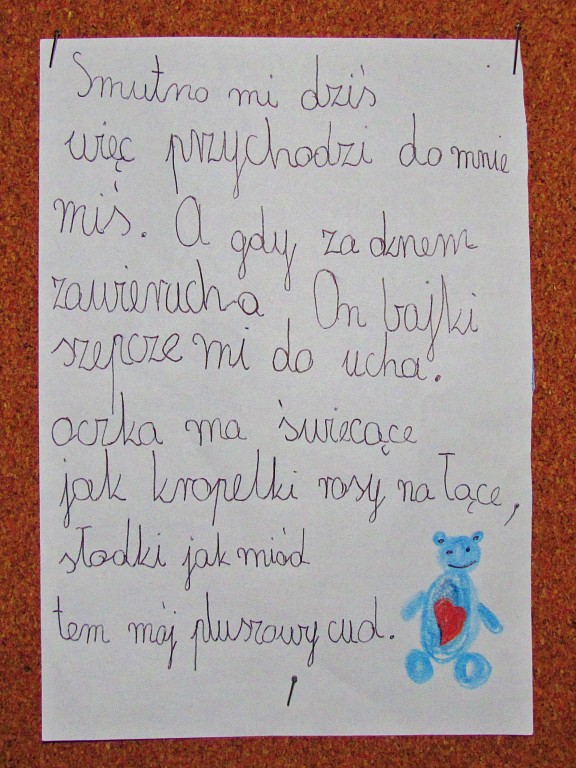 Smutno mi dziś
więc przychodzi do mnie
miś. A gdy za oknem
zawierucha On bajki
szepcze mi do ucha.
oczka ma świecące
jak kropelki rosy na łące,
słodki jak miód
tem mój pluszowy cud.